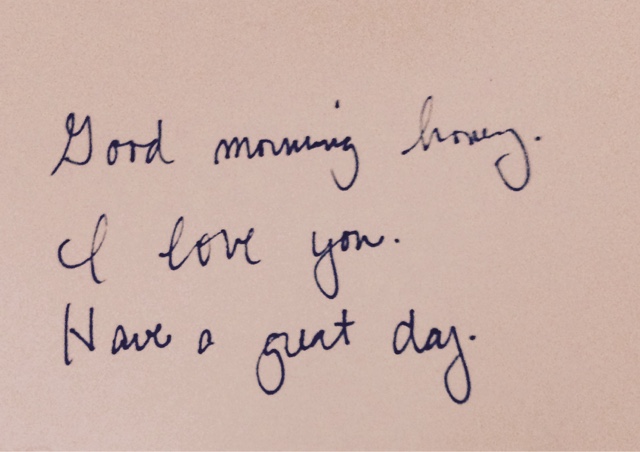 Good morning honey.
I love you.
Have a great day.